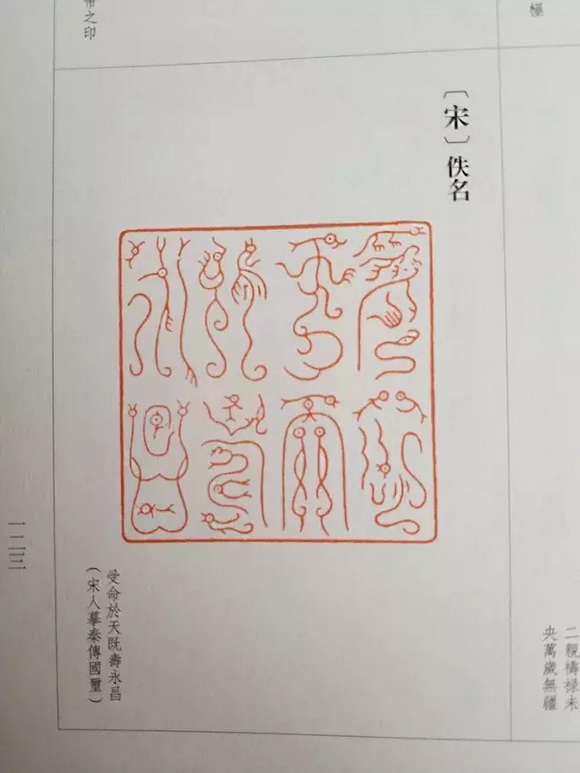 極
帝之印
〔宋〕佚名
二親禱祿未
央萬歲無疆
受命於天既壽永昌
(宋人摹秦傳國璽)
一二三